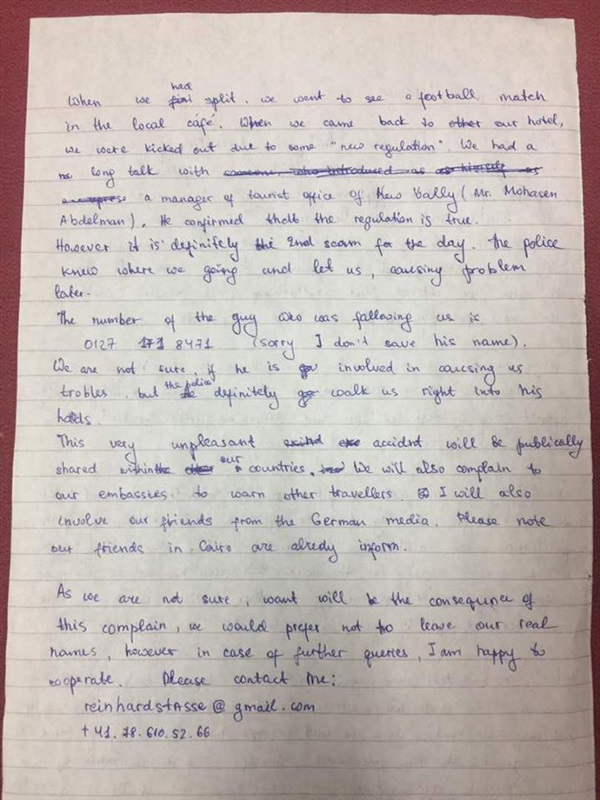 had
When we split, we went to see a football match
in the local café. When we came back to other our hotel,
we were kicked out due to some "new regulation". We had a
long talk with someone, who introduced as as himself as
a manager of tourist office of New Vally (Mr. Mohasen
Abdelman). He confirmed that the regulation is true.
However it is definitely the 2nd scam for the day. The police
knew where we going and let us, causing problem
later.
The number of the guy who was fallowing us is
0127 171 8471 (sorry I don't save his name).
We are not sure, if he is involved in caucsing us
the police
trobles, but definitely walk us right into his
hads.
This very unpleasant accidnt will be publically
our
shared within the other countries. We will also complain to
our embassies to warn other travellers. I will also
involve our friends from the German media. Please note
our friends in Cairo are alredy inform.
As we are not sure, want will be the consequence of
this complain, we would prefer not to leave our real
names, however in case of further queries, I am happy to
cooperate. Please contact me:
reinhardstasse@gmail.com
+41.78.610.52.66